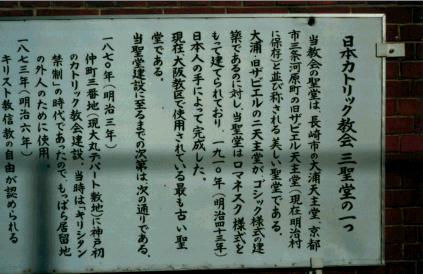 日本カトリック教会 三聖堂の一つ
当教会の聖堂は、長崎市の大浦天主堂、京都
市三条河原町の旧ザビエル天主堂(現在明治村
に保存)と並び称される美しい聖堂である。
大浦、旧ザビエルの二天主堂が、ゴシック様式の建
築であるのに対し、当聖堂はロマネスク様式を
もって建てられており、一九一〇年(明治四十三年)
日本人の手によって完成した。
現在、大阪教区で使用されている最も古い聖
堂である。
当聖堂建設に至るまでの次第は、次の通りである。
一八七〇年(明治三年)
仲町三番地(現大丸デパート敷地)に神戸初
のカトリック教会建設。当時は「キリシタン
禁制」の時代であったので、もっぱら居留地
の外人のために使用。
一八七三年(明治六年)
キリスト教信教の自由が認められる